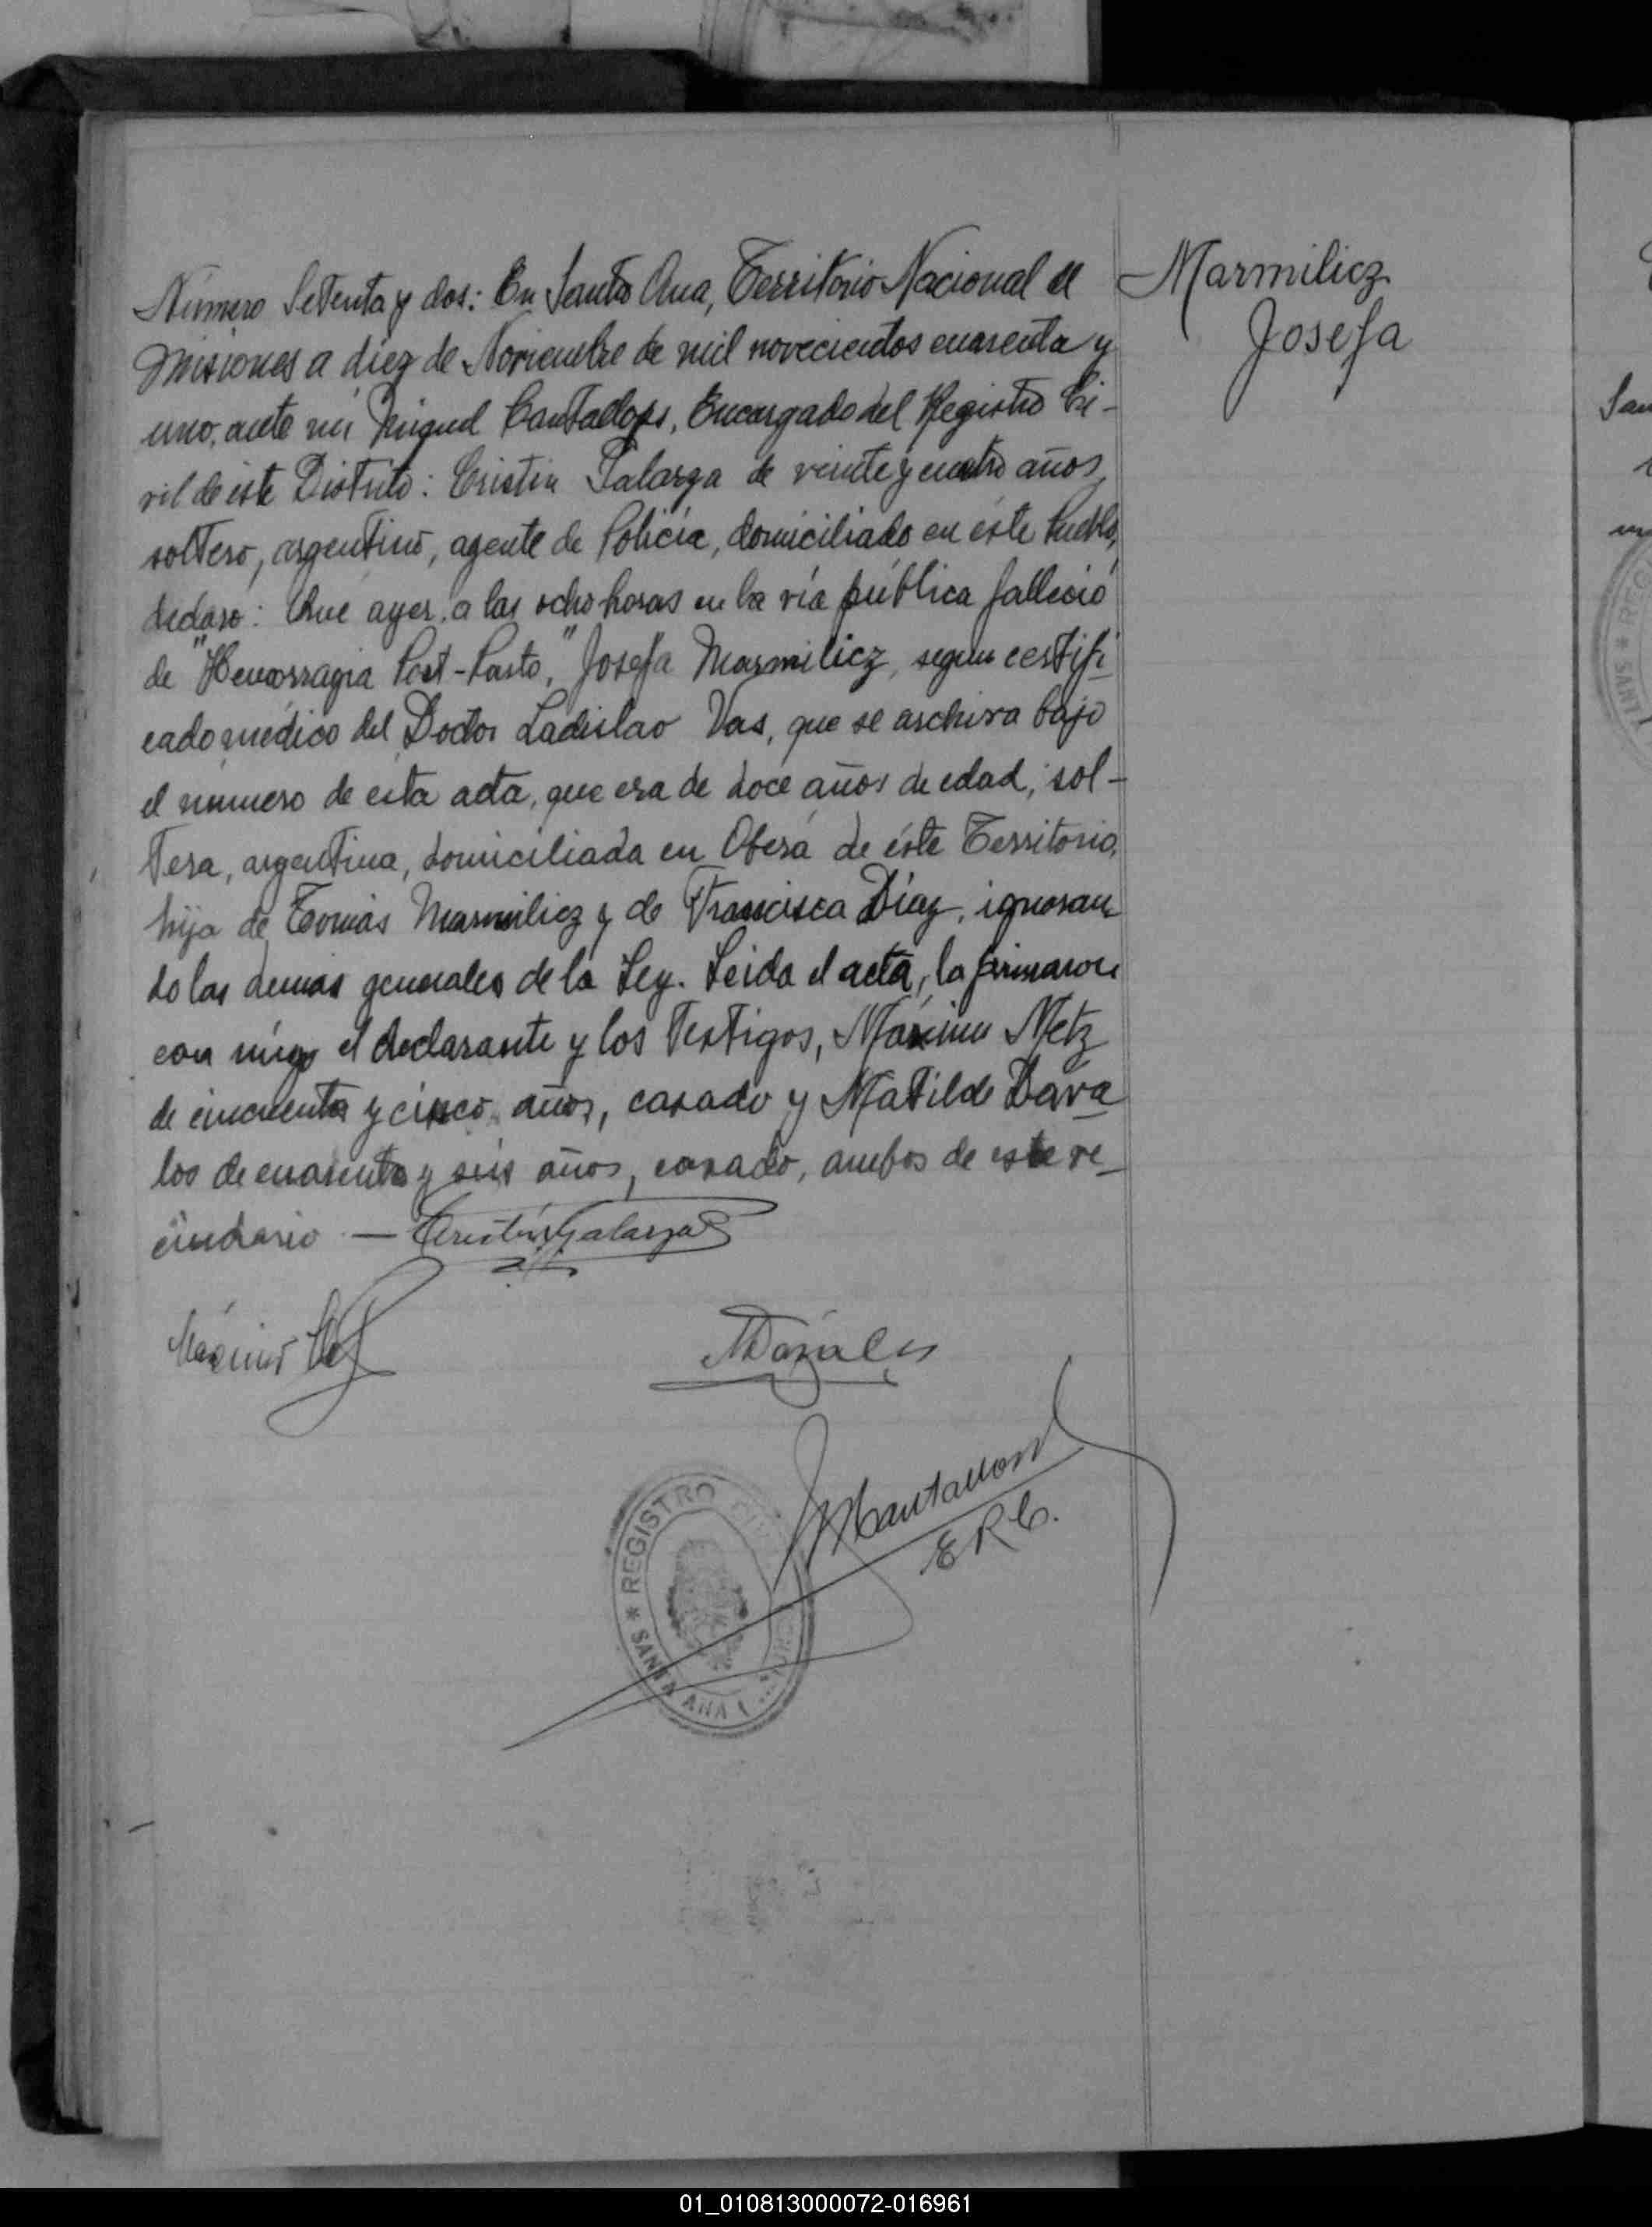 Marmilicz
Josefa
Número Setenta y dos: En Santa Ana, Territorio Nacional de
Misiones a diez de Noviembre de mil novecientos cuarenta y
uno, ante mi Miguel Cantallops, Encargado del Registro Ci-
vil de éste Distrito: Cristin Galarza de veinte y cuatro años,
soltero, argentino, agente de Policía, domiciliado en éste Pueblo,
declaró: Que ayer, a las ocho horas en la vía pública falleció
de "Hemorragia Post-Parto," Josefa Marmilicz, segun certifi-
cado médico del Doctor Ladislao Vas, que se archiva bajo
el número de ésta acta, que era de doce años de edad, sol-
tera, argentina, domiciliada en Oberá de éste Territorio,
hija de Tomás Marmilicz y de Francisca Díaz, ignoran-
do las demas generales de la Ley. Leida el acta, la firmaron
con migo el declarante y los Testigos, Máximo Metz
de cincuenta y cinco años, casado y Matilde Dava-
los de cuarenta y seis años, casado, ambos de este ve-
cindario — Cristín Galarza
Máximo
MDavalos
MCantallops
E R C.
* REGISTRO CIVIL
SANTA ANA
San
* REG
SANT
01_010813000072-016961